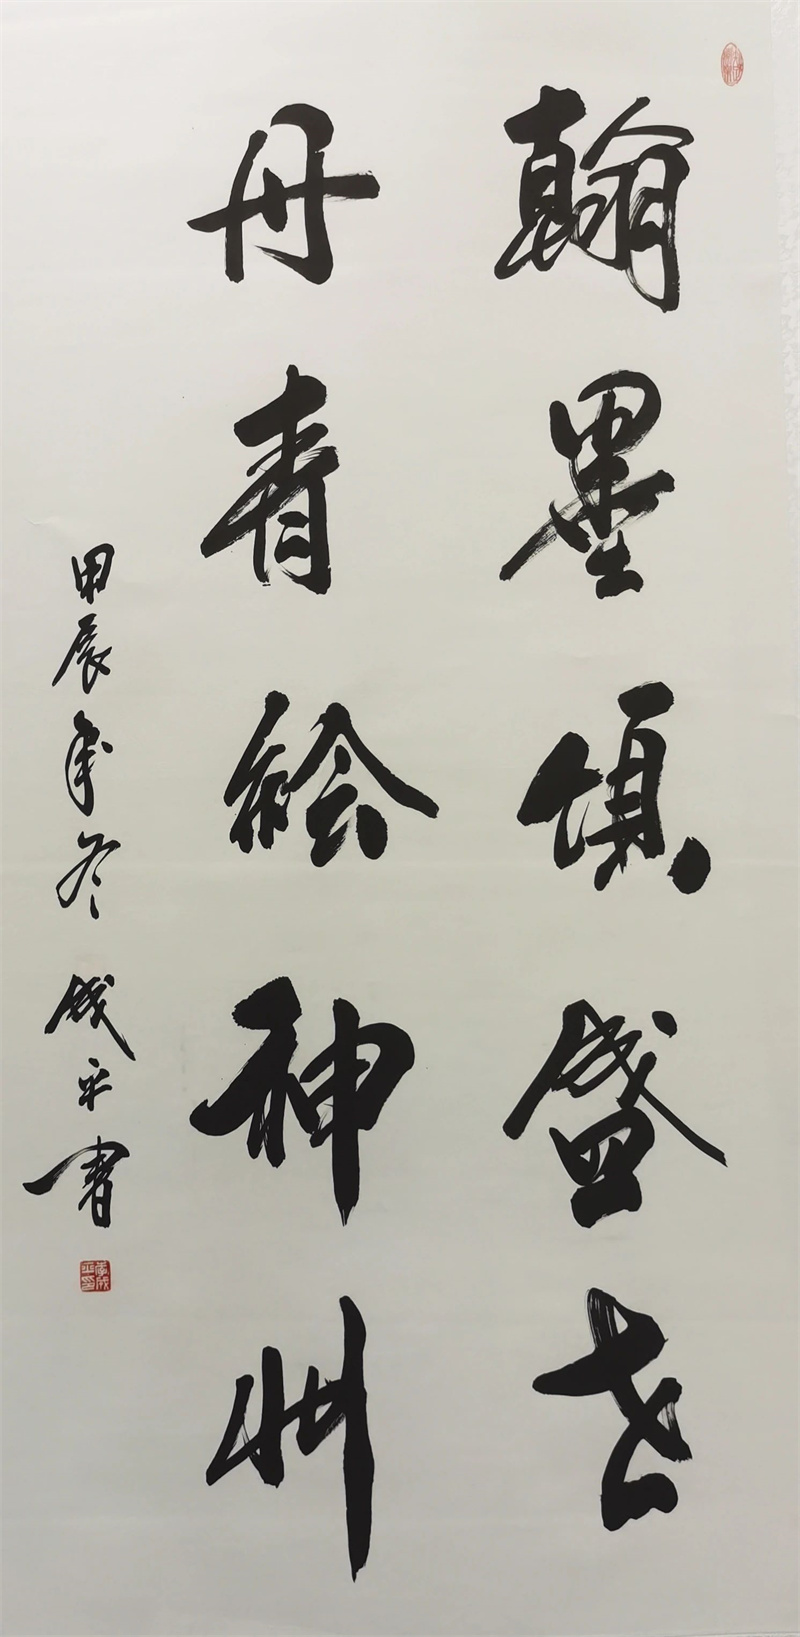 翰墨頌盛世
丹青绘神州
甲辰年冬 成平書